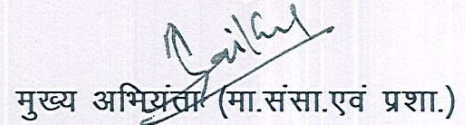 मुख्य अभियंता (मा.संसा.एवं प्रशा.)